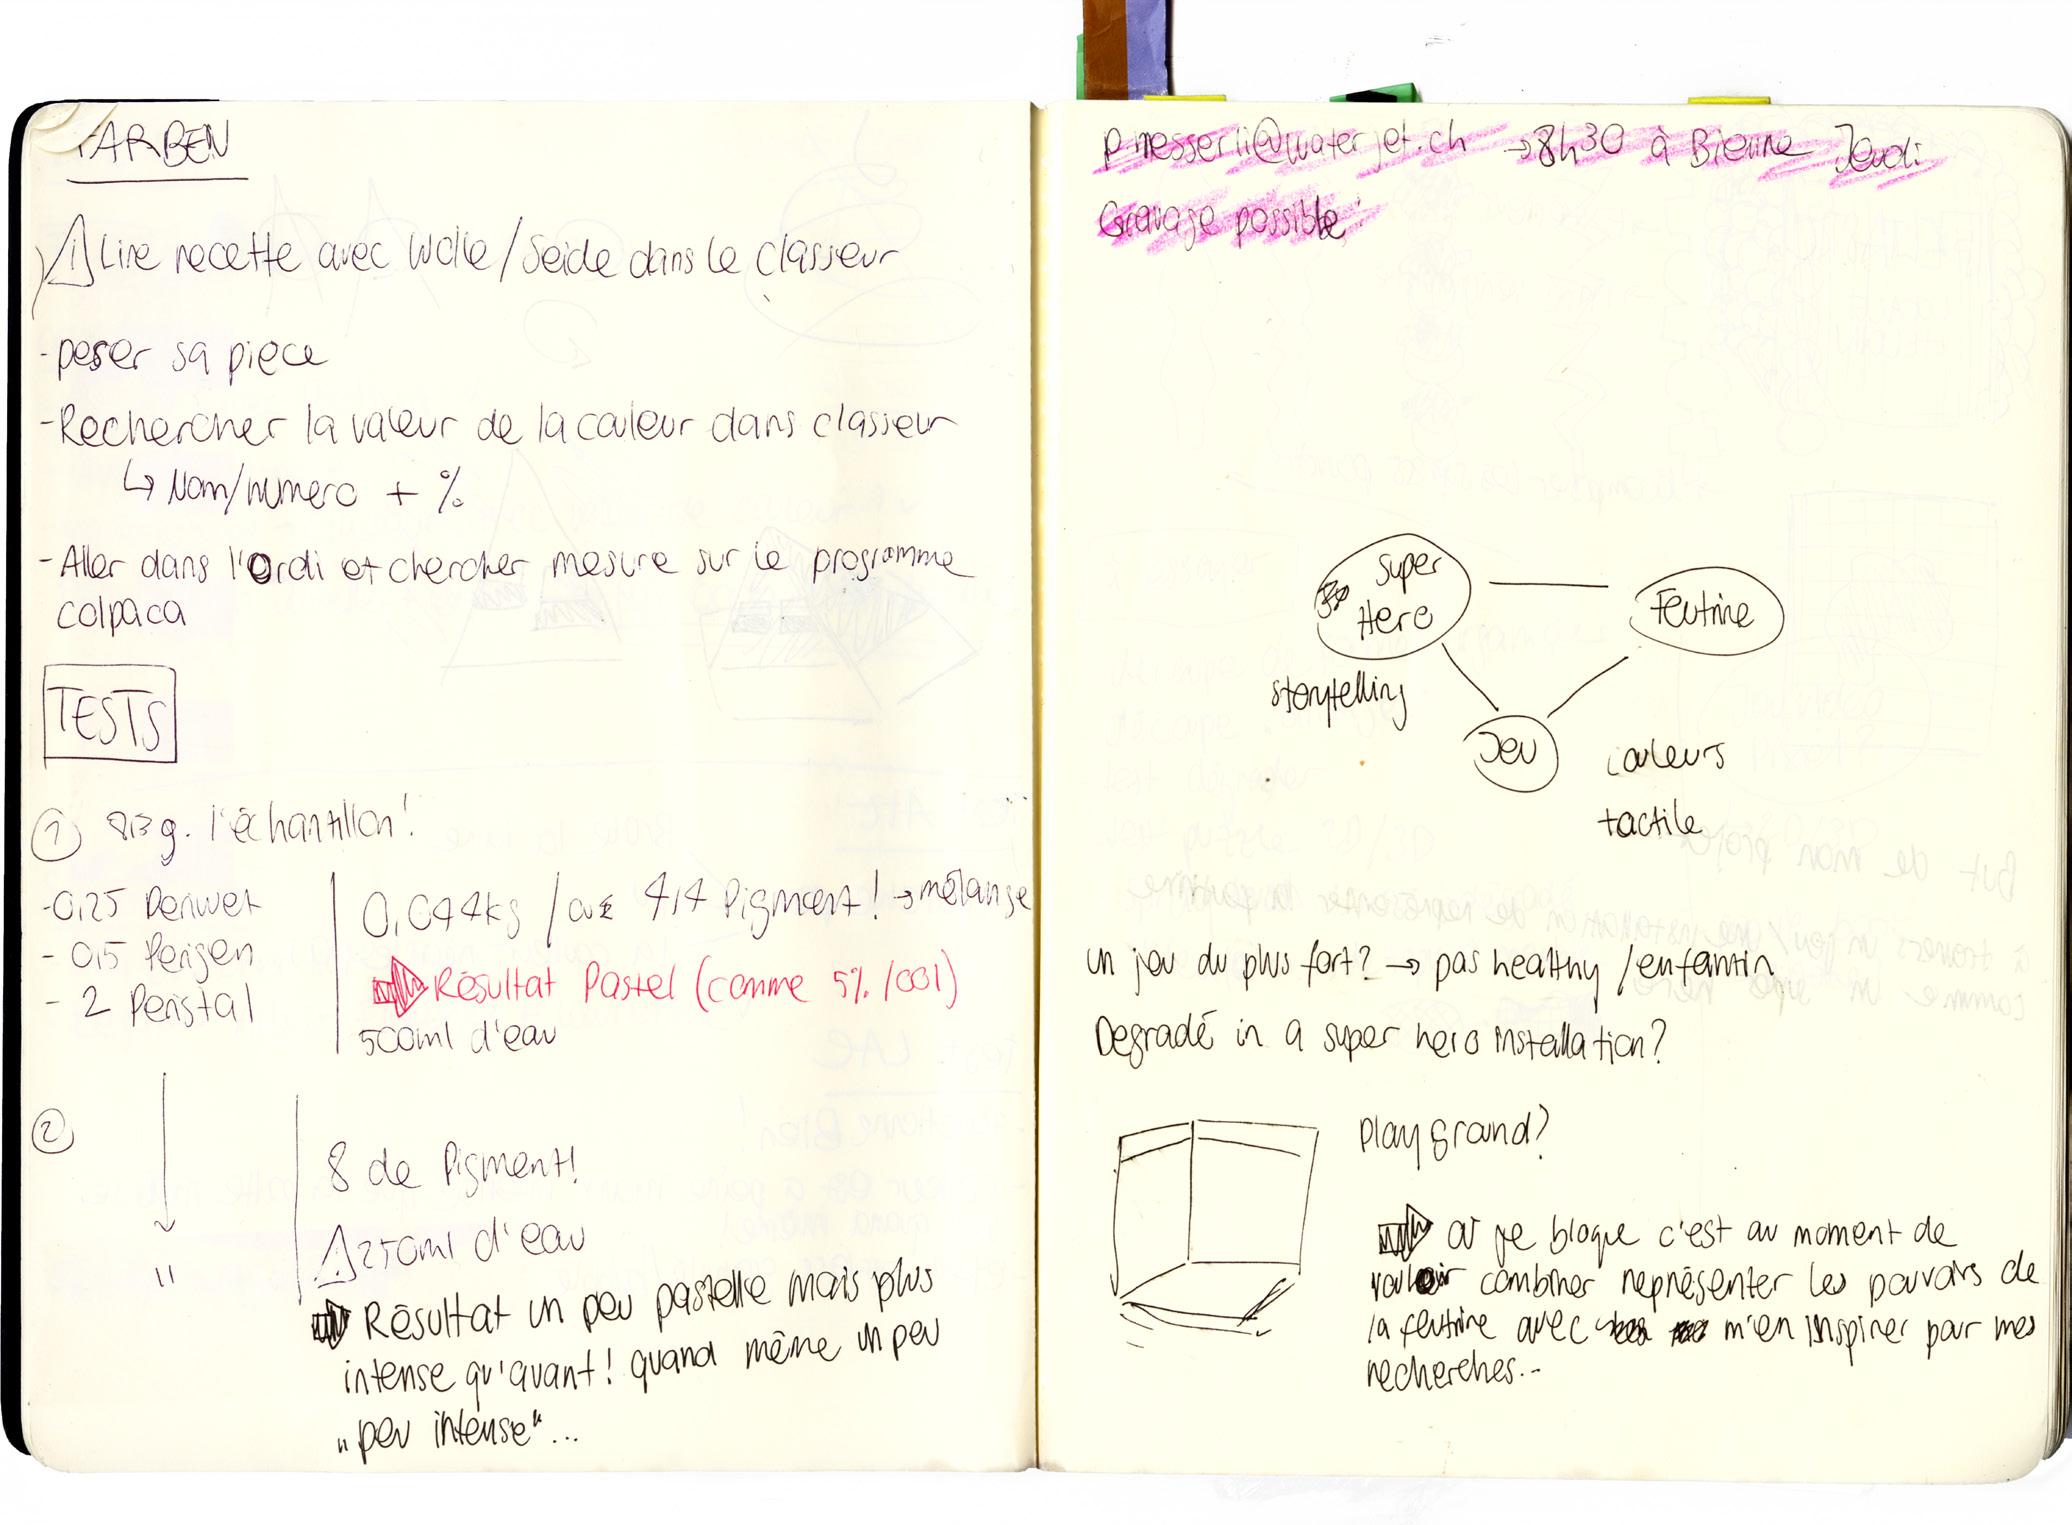 FARBEN
Lire recette avec Wolle/Seide dans le classeur
- peser sa piece
- Rechercher la valeur de la couleur dans classeur
↳ Nom/numero + %
- Aller dans l'Ordi et chercher mesure sur le programme
colpaca
TESTS
① g. l'échantillon!
- 0,25 Periwet
- 0,5 Perigen
- 2 Peristal
0,044kg / 4,4 Pigment! → mélange
Résultat Pastel (comme 5% /001)
500ml d'eau
②
"
8 de Pigment!
250ml d'eau
Résultat un peu pastelle mais plus
intense qu'avant! quand même un peu
„peu intense"...
p.messerli@waterjet.ch → 8h30 à Bienne Jeudi
Gravage possible
Super
Hero
Feutrine
storytelling
Jeu
couleurs
tactile
un jeu du plus fort? → pas healthy /enfantin
Degradé in a super hero installation?
Playground?
Où je bloque c'est au moment de
vouloir combiner représenter les pouvoirs de
la feutrine avec m'en inspirer pour mes
recherches...